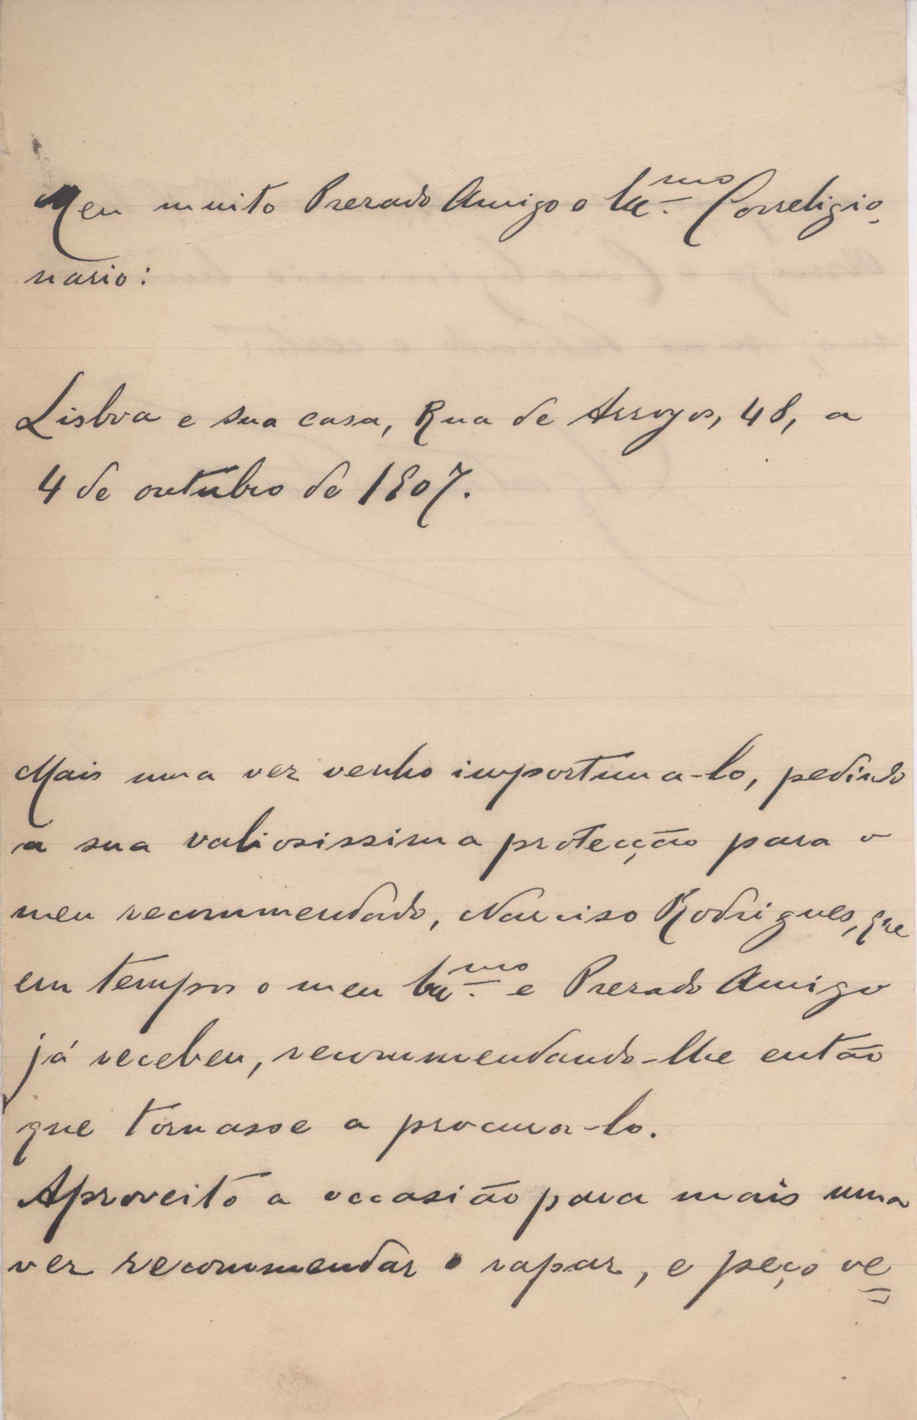 Meu muito Prezado Amigo e Ex.mo Correligio-
nario:
Lisboa e sua casa, Rua de Arroyos, 48, a
4 de outubro de 1907.
Mais uma vez venho importuna-lo, pedindo
a sua valiosissima protecção para o
meu recommendado, Narciso Rodrigues, que
em tempos o meu Ex.mo e Prezado Amigo
já recebeu, recommendando-lhe então
que tornasse a procura-lo.
Aproveito a occasião para mais uma
vez recommendar o rapaz, e peço ve=